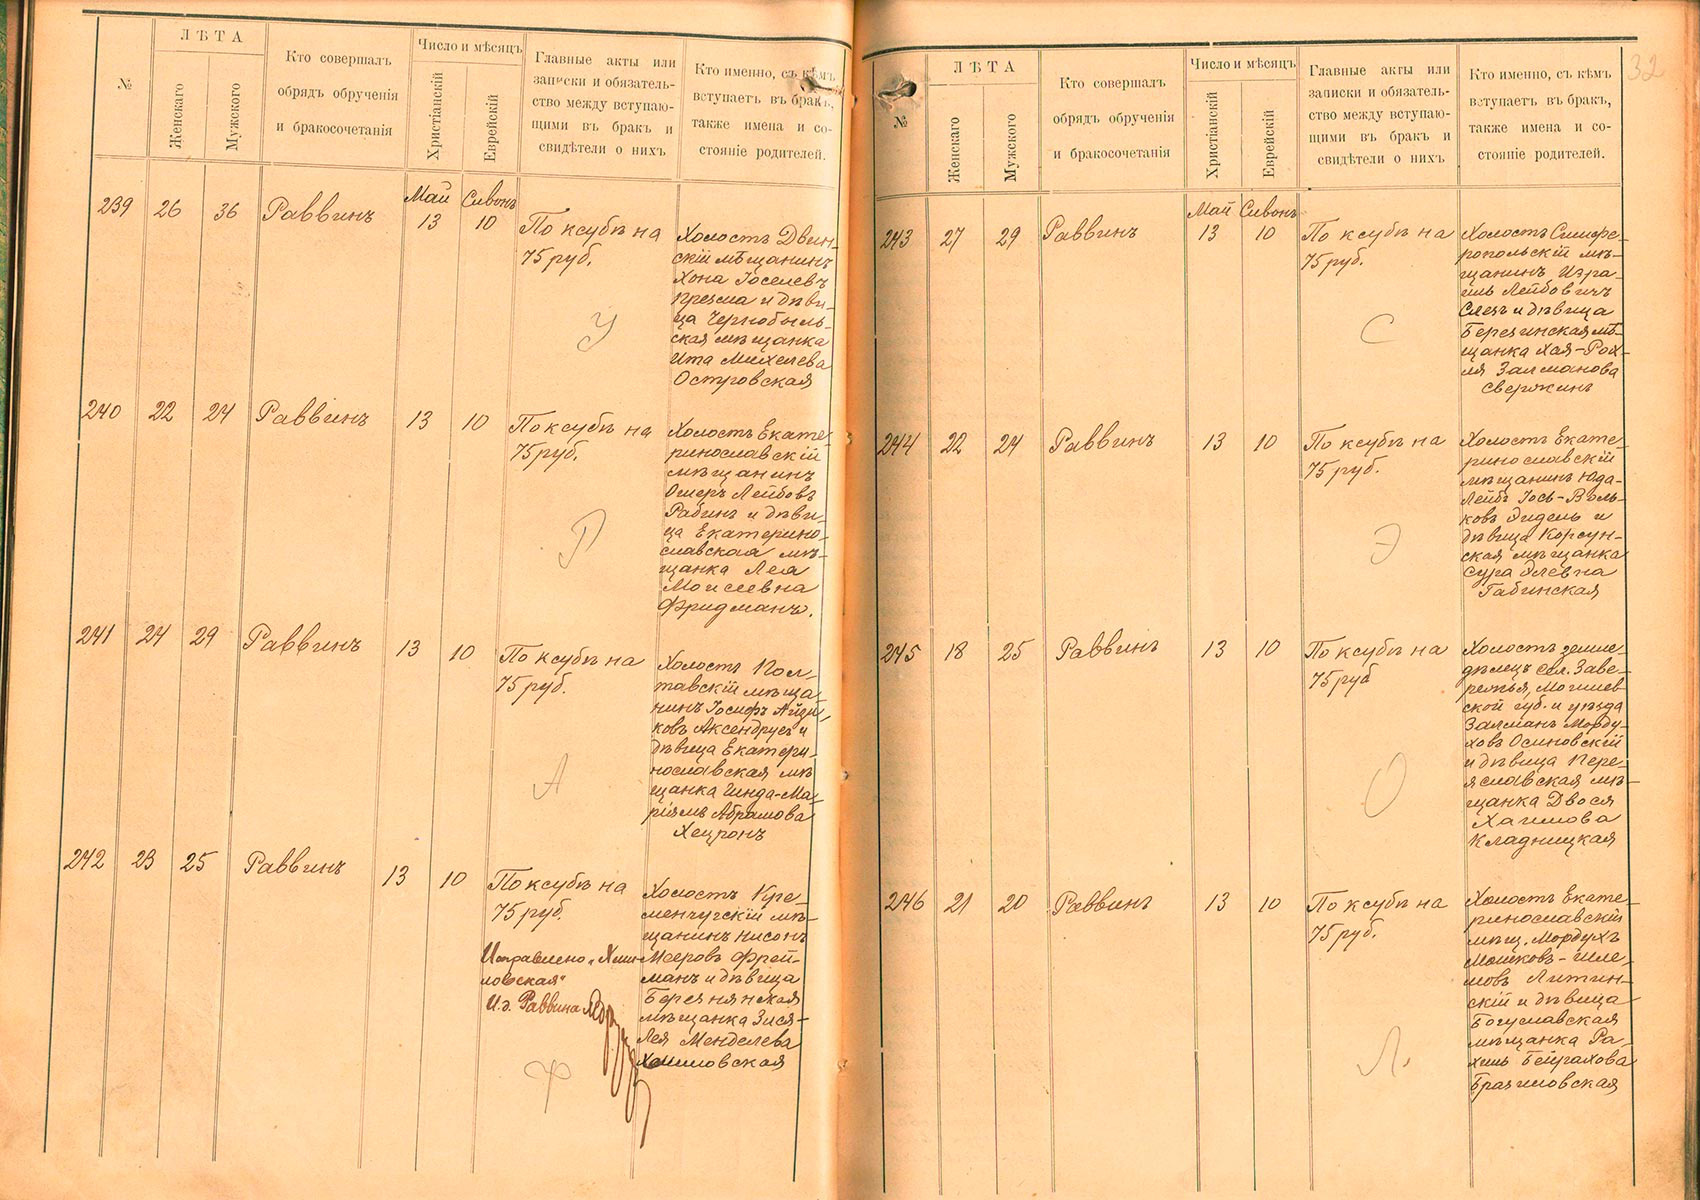 №
ЛѢТА
Женскаго
Мужского
Кто совершалъ
обрядъ обрученія
и бракосочетанія
Число и мѣсяцъ
Христіанскій
Еврейскій
Главные акты или
записки и обязатель-
ство между вступаю-
щими въ бракъ и
свидѣтели о нихъ
Кто именно, съ кѣмъ
вступаетъ въ бракъ,
также имена и со-
стояніе родителей.
239 26 36 Раввинъ
Май 13
Сивонъ 10
По ксубѣ на
75 руб.
У
Холостъ Двин-
скій мѣщанинъ
Хона Іоселевъ
и дѣви-
ца Чернобыль-
ская мѣщанка
Ита Михелева
Островская
240 22 24 Раввинъ 13 10
По ксубѣ на
75 руб.
Р
Холостъ Екате-
ринославскій
мѣщанинъ
Ошеръ Лейбовъ
Рабинъ и дѣви-
ца Екатерино-
славская мѣ-
щанка Лея
Моисеевна
Фридманъ.
241 24 29 Раввинъ 13 10
По ксубѣ на
75 руб.
А
Холостъ Пол-
тавскій мѣща-
нинъ Іосифъ Айзи-
ковъ Аксендруг и
дѣвица Екатери-
нославская мѣ-
щанка Гинда-Ма-
ріямъ Абрамова
Хецронъ
242 23 25 Раввинъ 13 10
По ксубѣ на
75 руб.
Исправлено „Хаи-
ловская"
И.д. Раввина
Ф
Холостъ Кре-
менчугскій мѣ-
щанинъ Нисонъ
Мееровъ Фрей-
манъ и дѣвица
Березнянская
мѣщанка Зися-
Лея Менделева
32
№
ЛѢТА
Женскаго
Мужского
Кто совершалъ
обрядъ обрученія
и бракосочетанія
Число и мѣсяцъ
Христіанскій
Еврейскій
Главные акты или
записки и обязатель-
ство между вступаю-
щими въ бракъ и
свидѣтели о нихъ
Кто именно, съ кѣмъ
вступаетъ въ бракъ,
также имена и со-
стояніе родителей.
243 27 29 Раввинъ
Май 13
Сивонъ 10
По ксубѣ на
75 руб.
С
Холостъ Симфе-
ропольскій мѣ-
щанинъ Изра-
иль Лейбовичъ
и дѣвица
Березинская мѣ-
щанка Хая-Рох-
ля Залманова
Свержинъ
244 22 24 Раввинъ 13 10
По ксубѣ на
75 руб.
Э
Холостъ Екате-
ринославскій
мѣщанинъ Юда-
Лейбъ Іось-Воль-
ковъ Эйдель и
дѣвица Корсун-
ская мѣщанка
Сура
Габинская
245 18 25 Раввинъ 13 10
По ксубѣ на
75 руб
О
Холостъ земле-
дѣлецъ сел. Заве-
режья, Могилев-
ской губ. и уѣзда
Залманъ Морду-
ховъ Осиновскій
и дѣвица Пере-
яславская мѣ-
щанка Двося
Хаимова
Кладницкая
246 21 20 Раввинъ 13 10
По ксубѣ на
75 руб.
Л.
Холостъ Екате-
ринославскій
мѣщ. Мордухъ
Мошковъ-Шле-
мовъ Литин-
скій и дѣвица
Богуславская
мѣщанка Ра-
хиль Бейрахова
Брагиловская